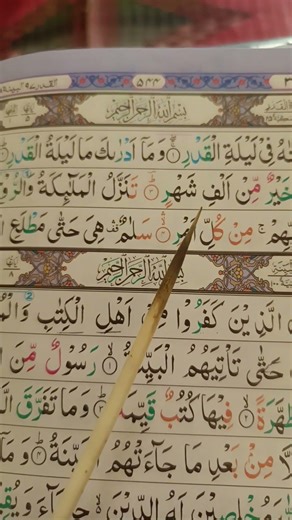 القدر ٩٧ البينة
٥٤٤
بِسْمِ اللّٰهِ الرَّحْمٰنِ الرَّحِيْمِ
فِىْ لَيْلَةِ الْقَدْرِ ۝١ وَمَاۤ اَدْرٰىكَ مَا لَيْلَةُ الْقَدْرِ
خَيْرٌ مِّنْ اَلْفِ شَهْرٍ ۝٣ تَنَزَّلُ الْمَلٰٓئِكَةُ وَالرُّ
مِّنْ كُلِّ اَمْرٍ ۝٤ سَلٰمٌ هِىَ حَتّٰى مَطْلَعِ ا
بِسْمِ اللّٰهِ الرَّحْمٰنِ الرَّحِيْمِ
الَّذِيْنَ كَفَرُوْا مِنْ اَهْلِ الْكِتٰبِ وَالْمُ
حَتّٰى تَاْتِيَهُمُ الْبَيِّنَةُ ۝١ رَسُوْلٌ مِّنَ ا
طَهَّرَةً ۝٢ فِيْهَا كُتُبٌ قَيِّمَةٌ ۝٣ وَمَا تَفَرَّقَ الَّ
لَّا مِنْۢ بَعْدِ مَا جَآءَتْهُمُ الْبَيِّنَةُ ۝٤ وَمَاۤ
مُخْلِصِيْنَ لَهُ الدِّيْنَ حُنَفَآءَ وَيُقِيْ